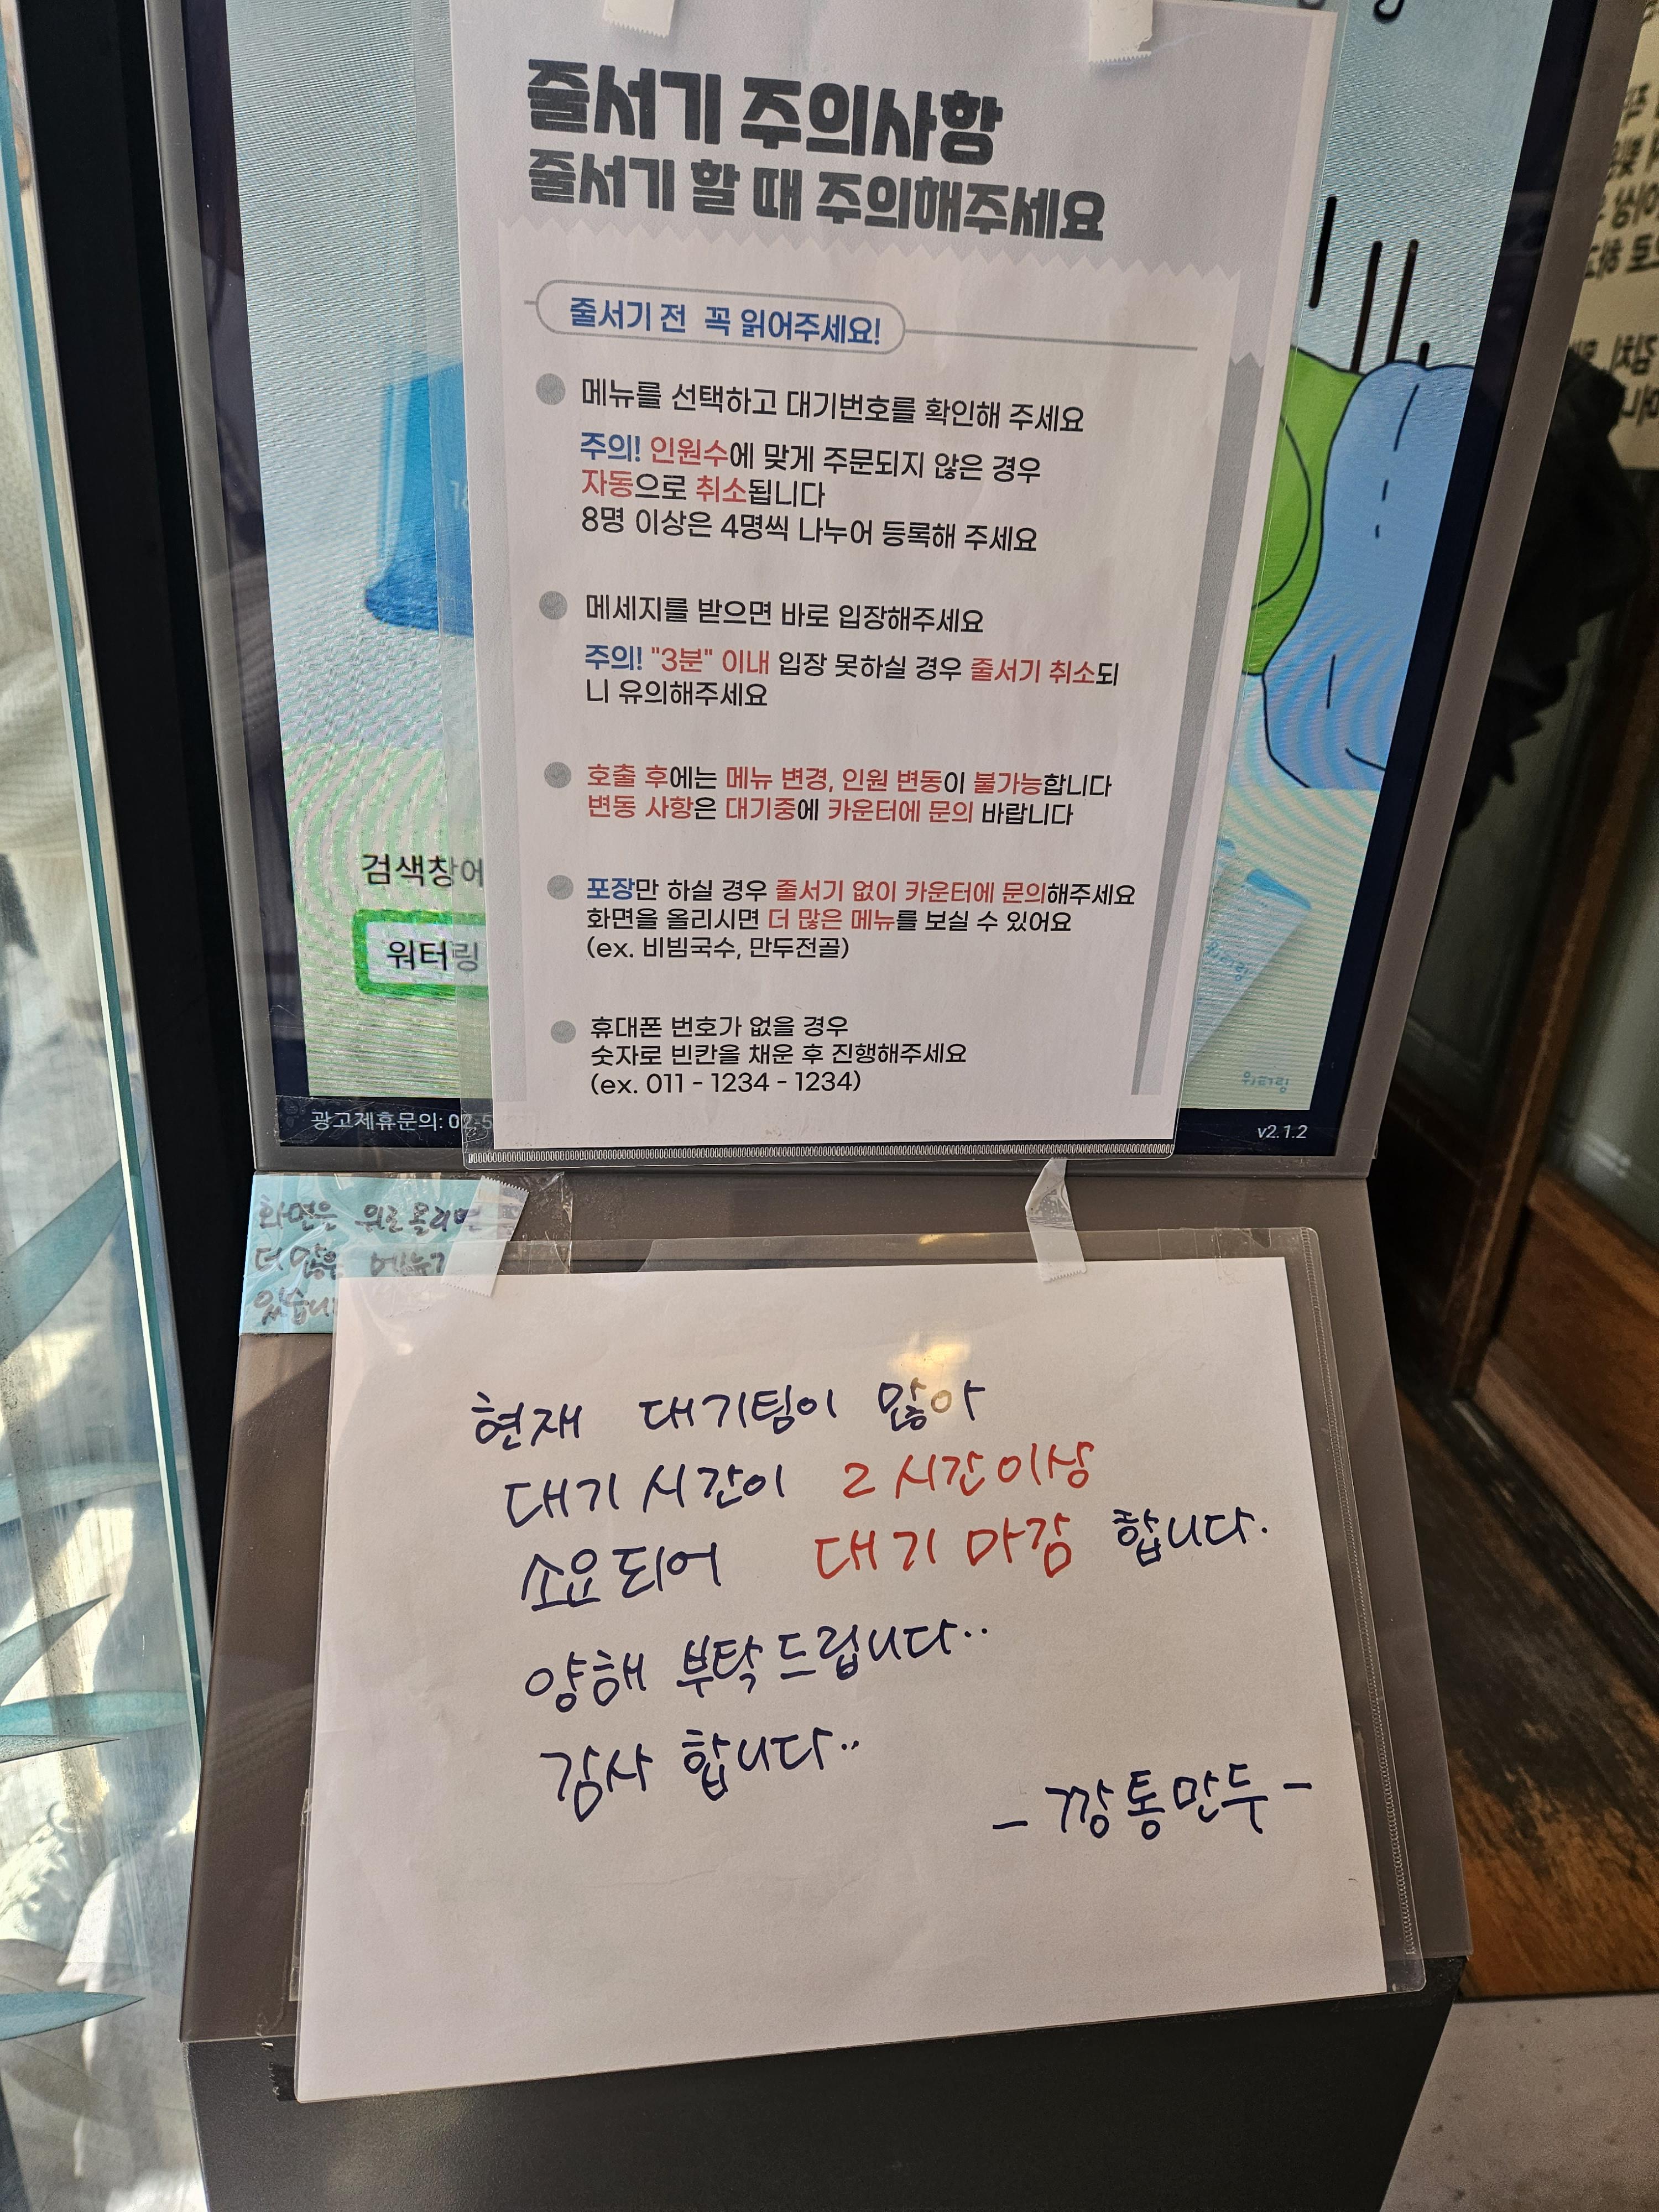 줄서기 주의사항
줄서기 할 때 주의해주세요
줄서기 전 꼭 읽어주세요!
메뉴를 선택하고 대기번호를 확인해 주세요
주의! 인원수에 맞게 주문되지 않은 경우
자동으로 취소됩니다
8명 이상은 4명씩 나누어 등록해 주세요
메세지를 받으면 바로 입장해주세요
주의! "3분" 이내 입장 못하실 경우 줄서기 취소되
니 유의해주세요
호출 후에는 메뉴 변경, 인원 변동이 불가능합니다
변동 사항은 대기중에 카운터에 문의 바랍니다
포장만 하실 경우 줄서기 없이 카운터에 문의해주세요
화면을 올리시면 더 많은 메뉴를 보실 수 있어요
(ex. 비빔국수, 만두전골)
휴대폰 번호가 없을 경우
숫자로 빈칸을 채운 후 진행해주세요
(ex. 011 - 1234 - 1234)
검색창에
워터링
워터링
광고제휴문의: 02-5
v2.1.2
화면을 위로 올리면
더 많은 메뉴가
있습니
현재 대기팀이 많아
대기 시간이 2시간이상
소요되어 대기 마감 합니다.
양해 부탁드립니다..
감사 합니다..
- 깡통만두 -